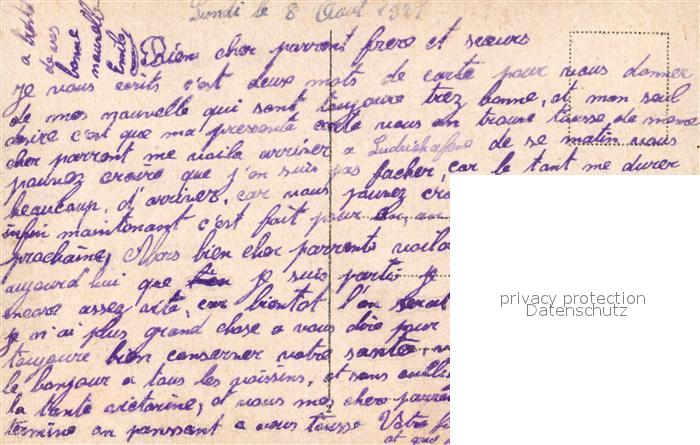 Lundi le 8 Aout 1921
a bientot
de vos
bonne
nouvelle
Emile
Bien cher parrent frere et sœurs
Je vous ecrits c'est deux mots de carte pour vous donner
de mes nouvelle qui sont toujours trez bonne, et mon seul
desire c'est que ma pressente carte vous en trouve tousse de meme
cher parrent me voila arriver a Ludwishafene de se matin vous
pouvez croire que j'en suis pas facher, car le tant me durer
beaucoup, d'arriver, car vous pouvez cro
infin maintenant c'est fait pour un an
prochaine, Alors bien cher parrents voila
aujourd'hui que je suis partir je
encore assez vite, car bientot l'on serat
je n'ai plus grand chose a vous dire pour
toujours bien conserver votre santée,
le bonjour a tous les voissins, et sans oublie
la tante victorine, et vous mes cher parren
termine an panssant a vous tousse Votre
et qui
privacy protection
Datenschutz